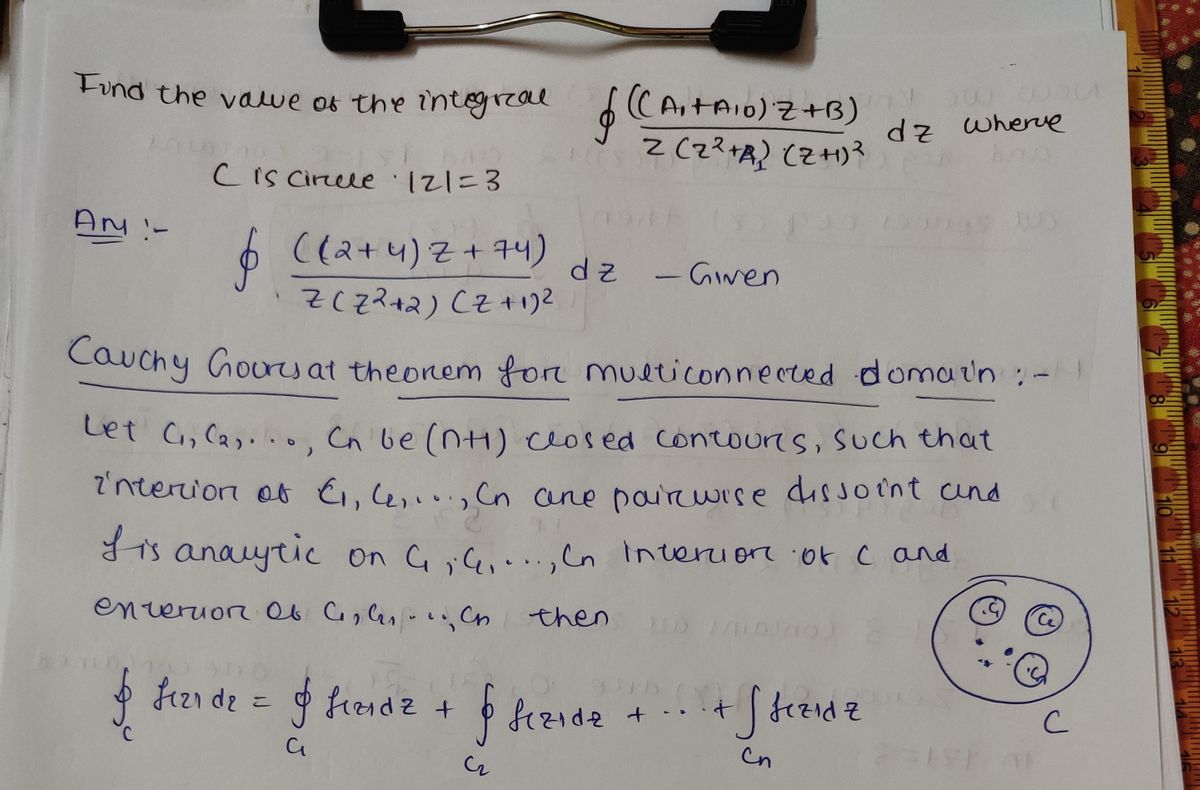 Find the value of the integral ∮ ((A₁+A₁₀)z+B) / z(z²+A₁)(z+1)² dz where
C is circle |z|=3
Ans :-
∮ ((2+4)z+74) / z(z²+2)(z+1)² dz - Given
Cauchy Goursat theorem for multiconnected domain :-
Let C₁, C₂, ..., Cn be (n+1) closed contours, such that
interior of C₁, C₂, ..., Cn are pairwise dissoint and
f is analytic on C₁, C₂, ..., Cn interior of C and
exterior of C₁, C₂, ..., Cn then
∮ f(z)dz = ∮ f(z)dz + ∮ f(z)dz + ... + ∫ f(z)dz
C C₁ C₂ Cn
C₁ C₂
C
1 2 3 4 5 6 7 8 9 10 11 12 13 14 15